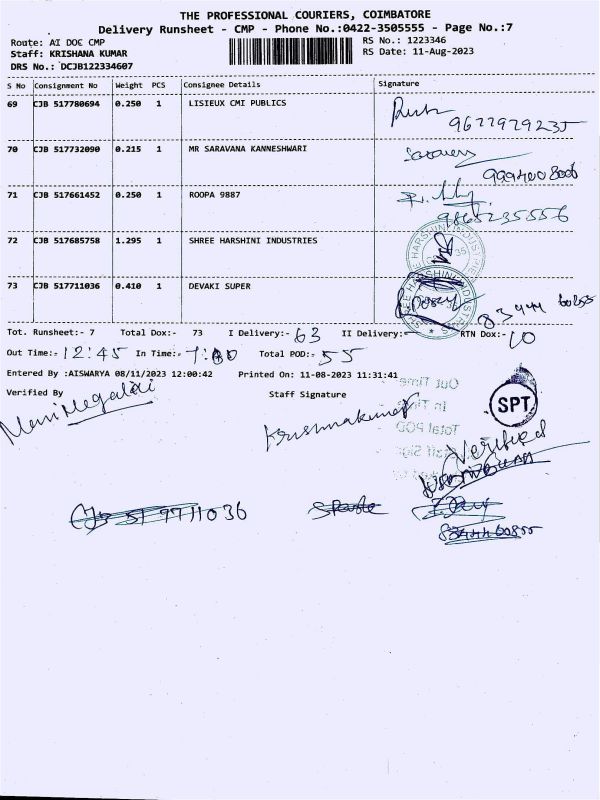 THE PROFESSIONAL COURIERS, COIMBATORE
Delivery Runsheet - CMP - Phone No.:0422-3505555 - Page No.:7
Route: AI DOC CMP
RS No.: 1223346
Staff: KRISHANA KUMAR
RS Date: 11-Aug-2023
DRS No.: DCJB122334607
S No Consignment No Weight PCS Consignee Details Signature
69 CJB 517780694 0.250 1 LISIEUX CMI PUBLICS
9677979235
70 CJB 517732090 0.215 1 MR SARAVANA KANNESHWARI
71 CJB 517661452 0.250 1 ROOPA 9887
9865235556
72 CJB 517685758 1.295 1 SHREE HARSHINI INDUSTRIES
SHREE HARSHINI INDUSTRIES
73 CJB 517711036 0.410 1 DEVAKI SUPER
SHREE HARSHINI INDUSTRIES
83444 60855
Tot. Runsheet:- 7 Total Dox:- 73 I Delivery:- 63 II Delivery:- RTN Dox:- 10
Out Time:- 12:45 In Time:- 7:00 Total POD:- 55
Entered By :AISWARYA 08/11/2023 12:00:42 Printed On: 11-08-2023 11:31:41
Verified By Staff Signature
Manimegalai
Krishnakumar
Out Time
In Time
Total POD
Staff Sig
SPT
Verified
CJB 517711036
83444 60855